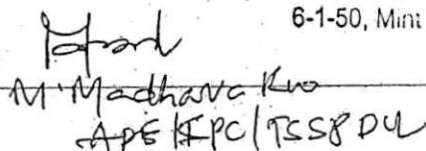 6-1-50, Mint
M. Madhava Rao
ADE/IPC/TSSPDCL